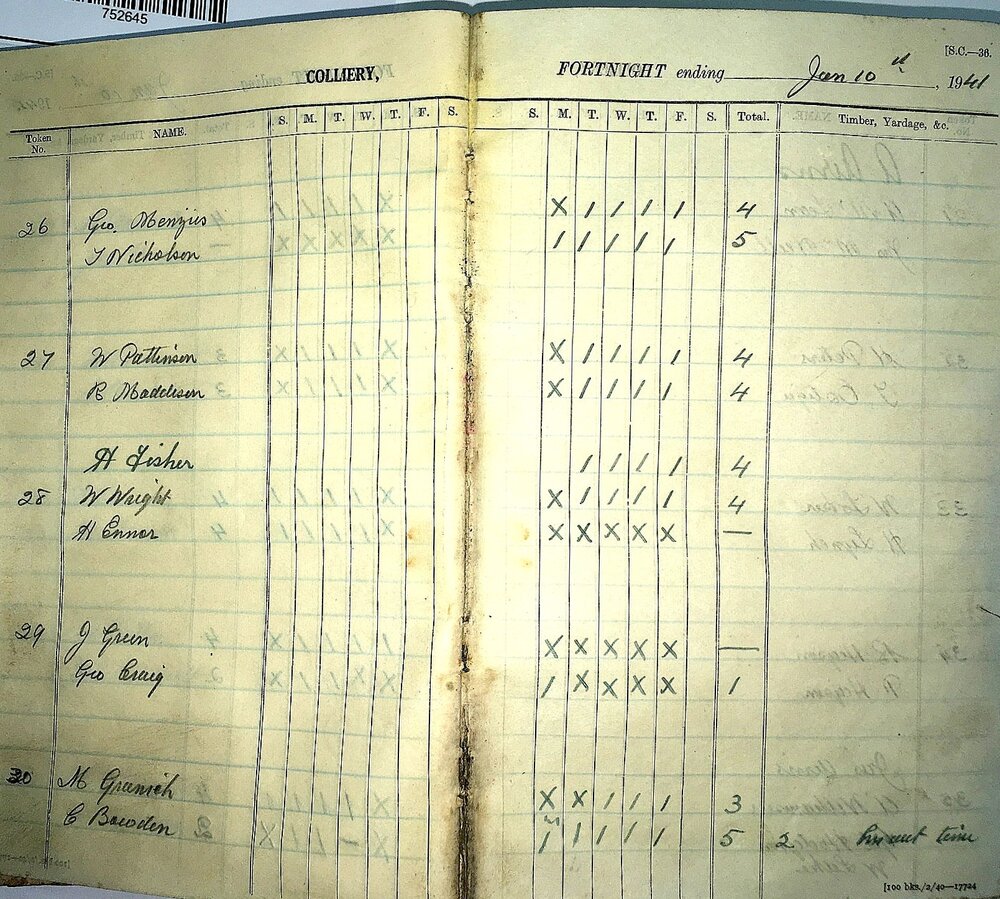 752645
[S.C.—36.
COLLIERY, FORTNIGHT ending Jan 10th, 1941
Token No. NAME. S. M. T. W. T. F. S. S. M. T. W. T. F. S. Total. Timber, Yardage, &c.
26 Geo. Menzies X / / / / 4
T Nicholson / / / / / 5
27 W Pattinson X / / / / 4
R Maddison X / / / / 4
H Fisher / / / / 4
28 W Wright X / / / / 4
H Ennor X X X X X —
29 J Green X X X X X —
Geo Craig / X X X X 1
30 M Greenich X X / / / 3
C Bowden / / / / / 5 2 time
[100 bks./2/40—17724